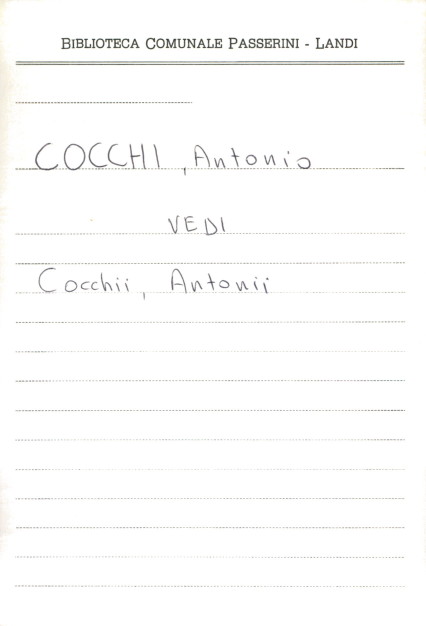 BIBLIOTECA COMUNALE PASSERINI - LANDI
COCCHI, Antonio
VEDI
Cocchii, Antonii